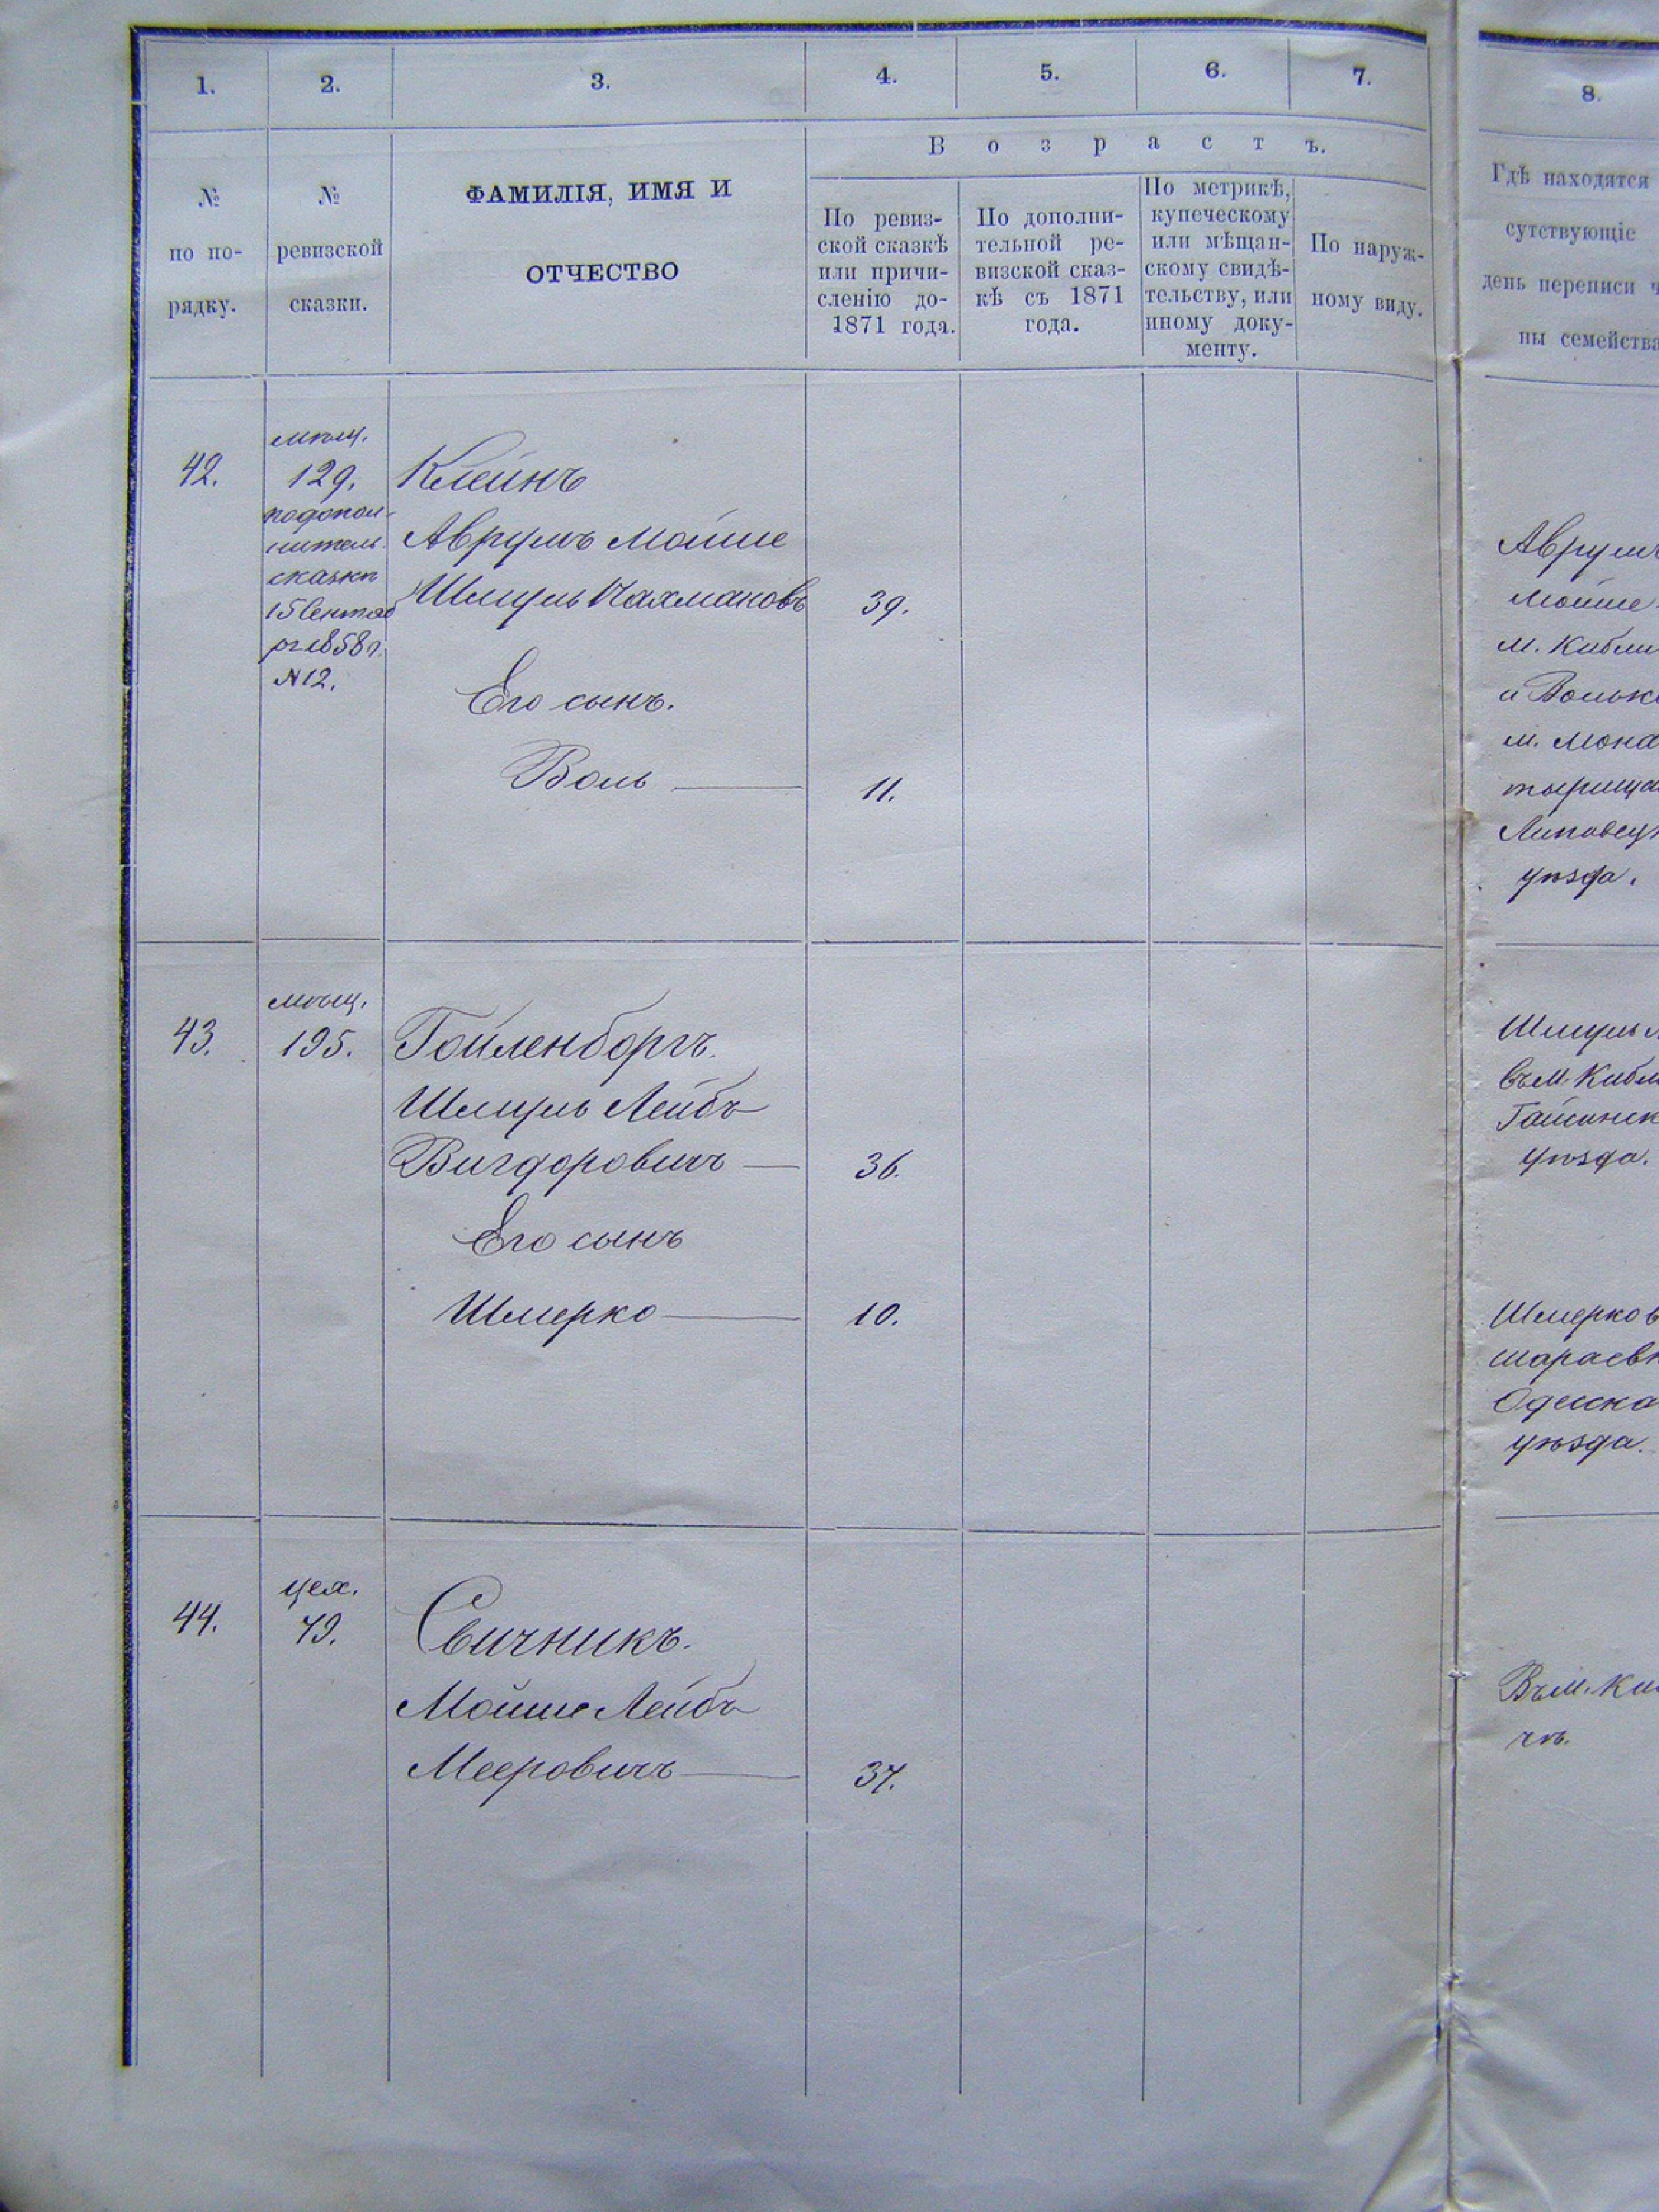 1.
2.
3.
4.
5.
6.
7.
8.
Возрастъ.
№
по по-
рядку.
№
ревизской
сказки.
ФАМИЛІЯ, ИМЯ И
ОТЧЕСТВО
По ревиз-
ской сказкѣ
или причи-
сленію до-
1871 года.
По дополни-
тельной ре-
визской сказ-
кѣ съ 1871
года.
По метрикѣ,
купеческому
или мѣщан-
скому свидѣ-
тельству, или
иному доку-
менту.
По наруж-
ному виду.
Гдѣ находятся
сутствующіе
день переписи ч
ны семейства
42.
мѣщ.
129.
подопол-
нитель.
сказкѣ
15 Сентяб
ря 1858 г.
N12.
Клейнъ
Аврумъ Мойше
Шмуль Нахмановъ 39.
Его сынъ.
Воль 11.
Аврумъ
Мойше
м. Кибли
и Вольк
м. Мона
тырища
Липовец
уѣзда.
43.
мѣщ.
195.
Гойленборгъ.
Шмуль Лейбъ
Вигдоровичъ 36.
Его сынъ
Шмерко 10.
Шмуль
въ м. Кибл
Гайсинск
уѣзда.
Шмерко в
шараевк
Одесска
уѣзда.
44.
цех.
79.
Свичникъ.
Мойше Лейбъ
Мееровичъ 37.
Въ м. Ки
чѣ.